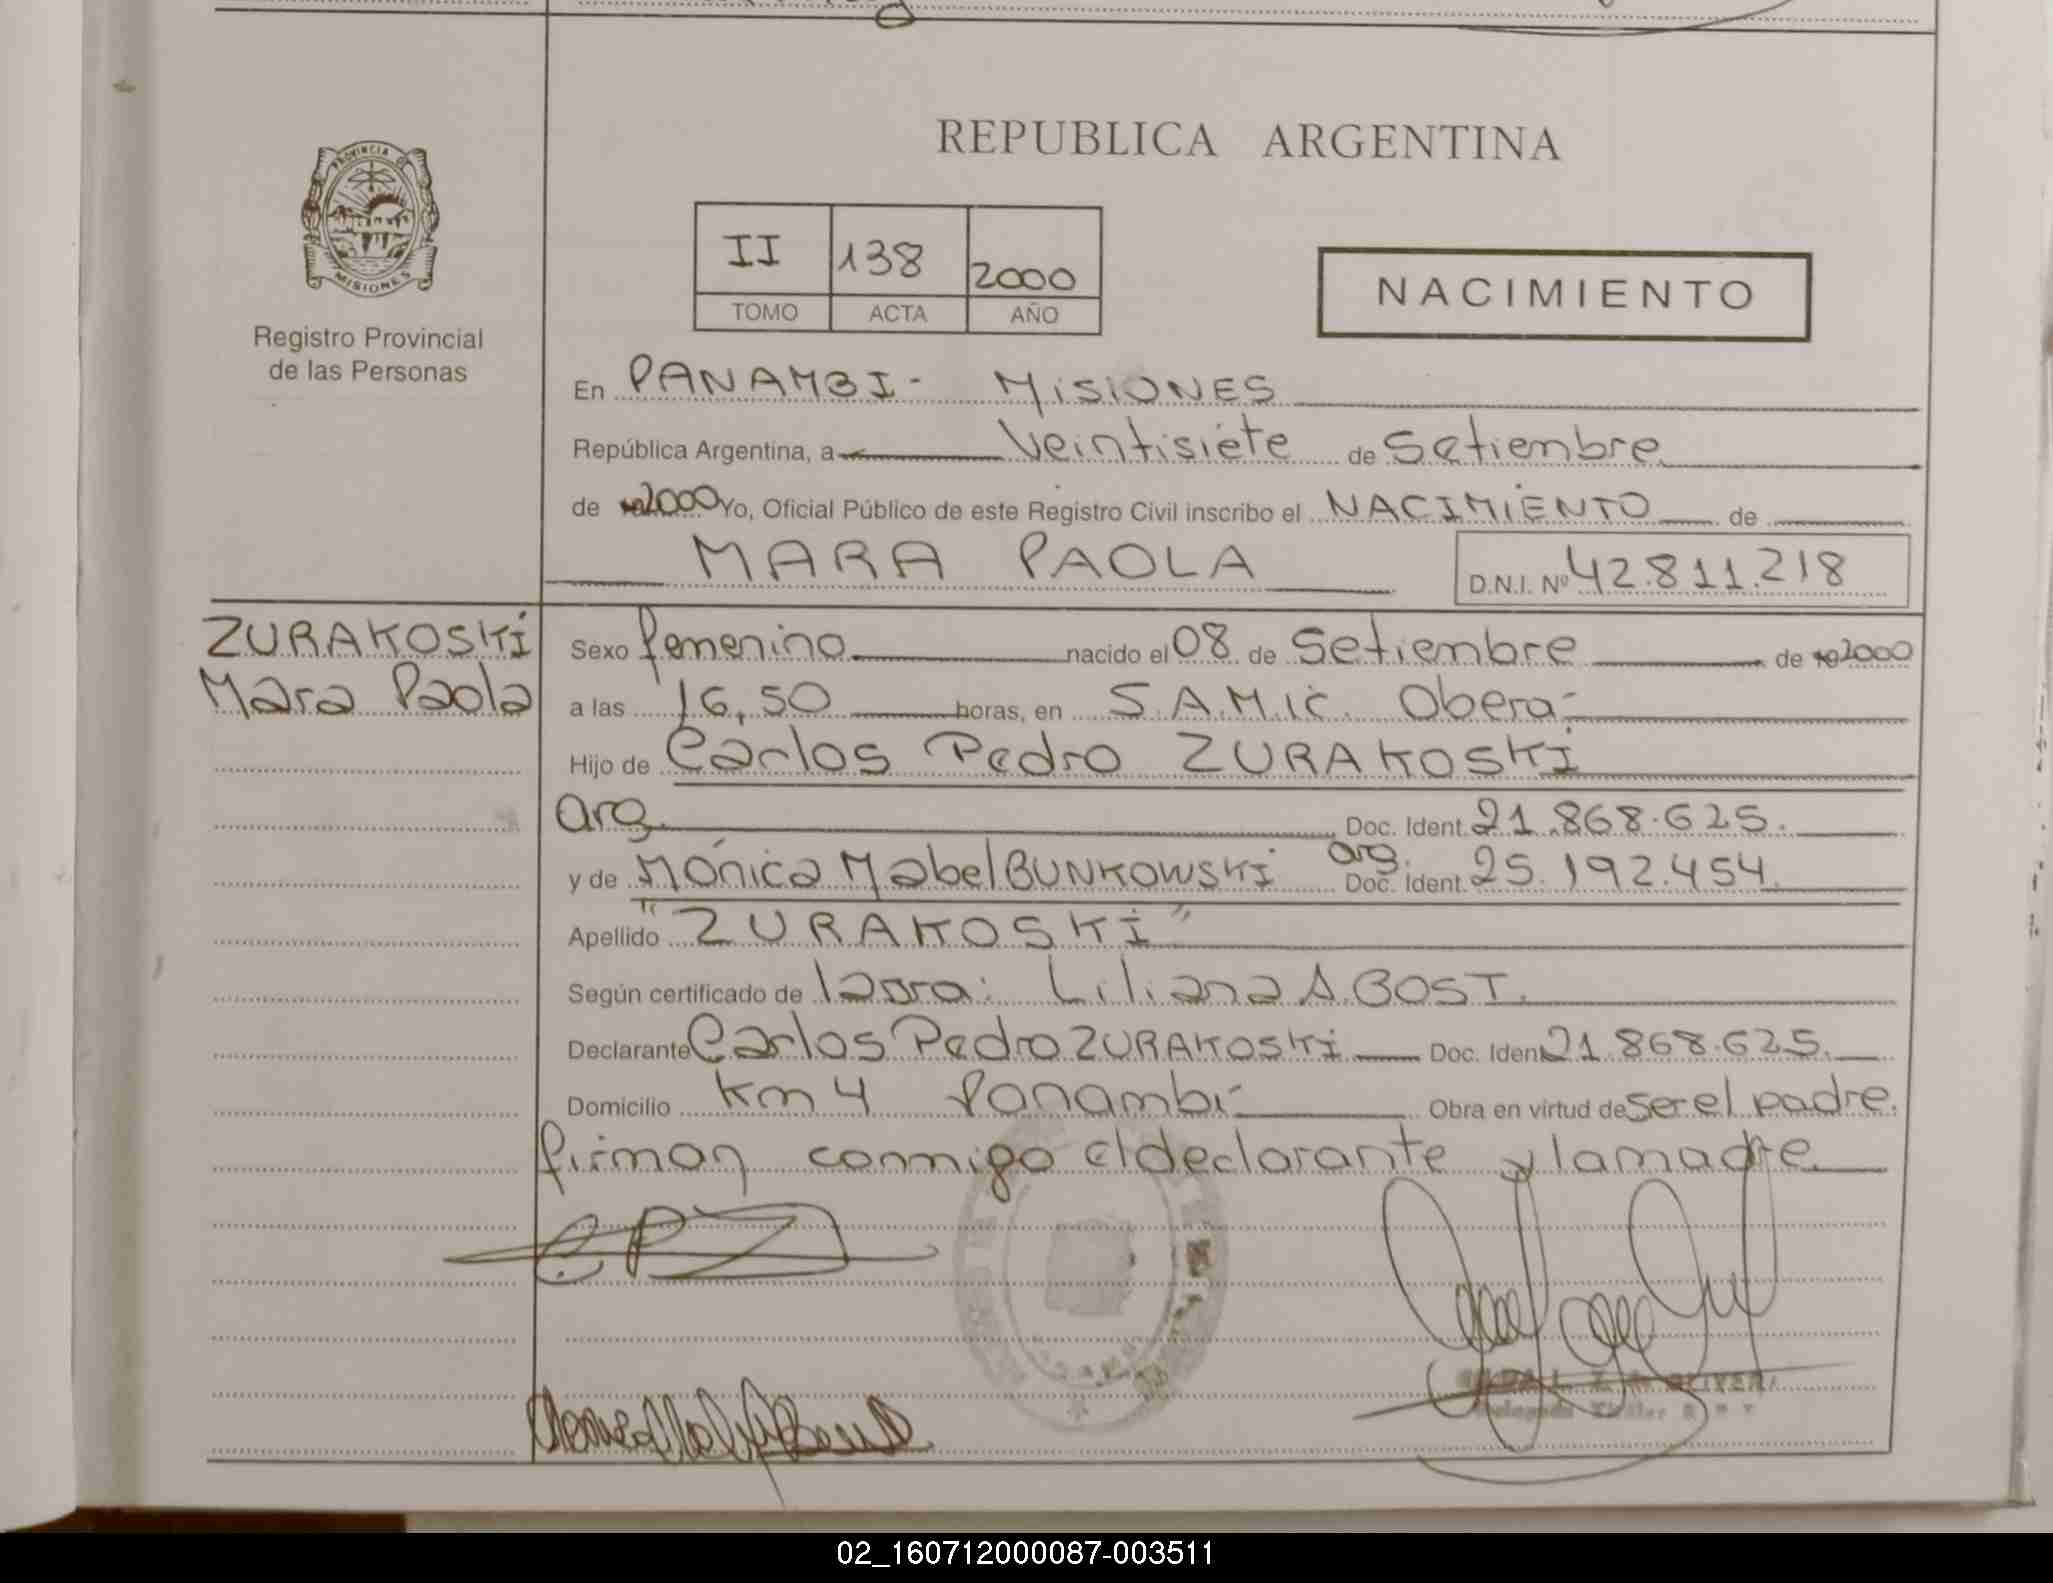 REPUBLICA ARGENTINA
PROVINCIA D
MISIONES
Registro Provincial
de las Personas
II 138 2000
TOMO ACTA AÑO
NACIMIENTO
En PANAMBI- MISIONES
República Argentina, a Veintisiete de Setiembre
de 2000 Yo, Oficial Público de este Registro Civil inscribo el NACIMIENTO de
MARA PAOLA
D.N.I. Nº 42.811.218
ZURAKOSKI
Mara Paola
Sexo femenino nacido el 08 de Setiembre de 2000
a las 16,50 horas, en S.A.M.ic. Obera-
Hijo de Carlos Pedro ZURAKOSKI
arg. Doc. Ident. 21.868.625.
y de Mónica Mabel BUNKOWSKI arg. Doc. Ident. 25.192.454.
Apellido "ZURAKOSKI"
Según certificado de la Liliana A BOST.
Declarante Carlos Pedro ZURAKOSKI Doc. Iden 21.868.625.
Domicilio Km 4 Panambi- Obra en virtud de ser el padre.
firman conmigo el declarante y la madre
02_160712000087-003511